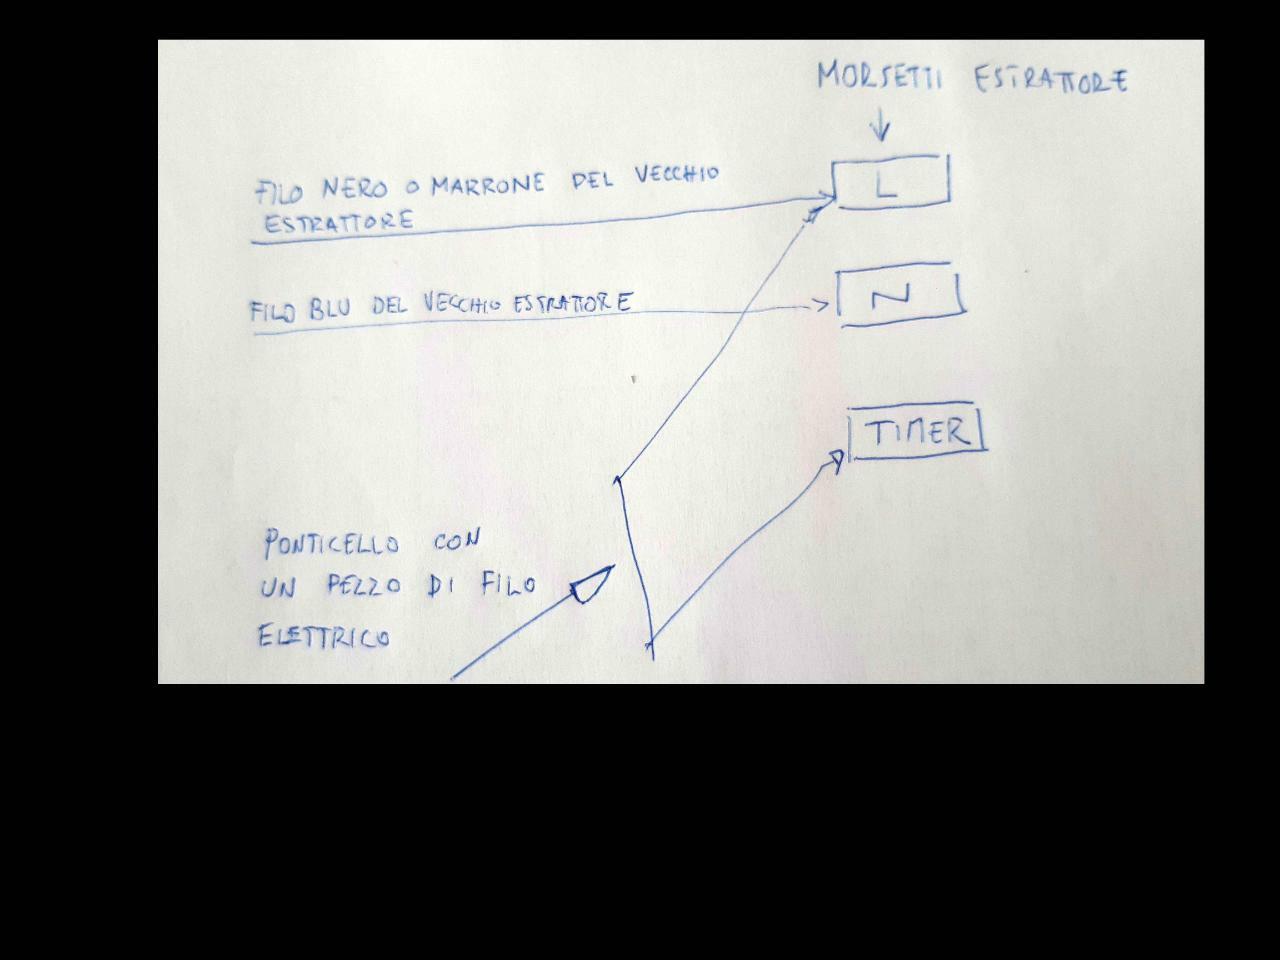 MORSETTI ESTRATTORE
FILO NERO O MARRONE DEL VECCHIO
ESTRATTORE
L
FILO BLU DEL VECCHIO ESTRATTORE
N
TIMER
PONTICELLO CON
UN PEZZO DI FILO
ELETTRICO